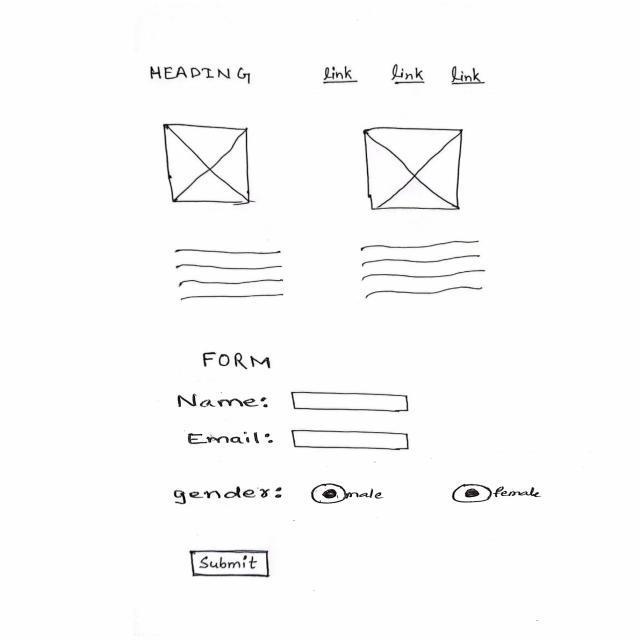 HEADING link link link
FORM
Name:
Email:
gender: male female
Submit